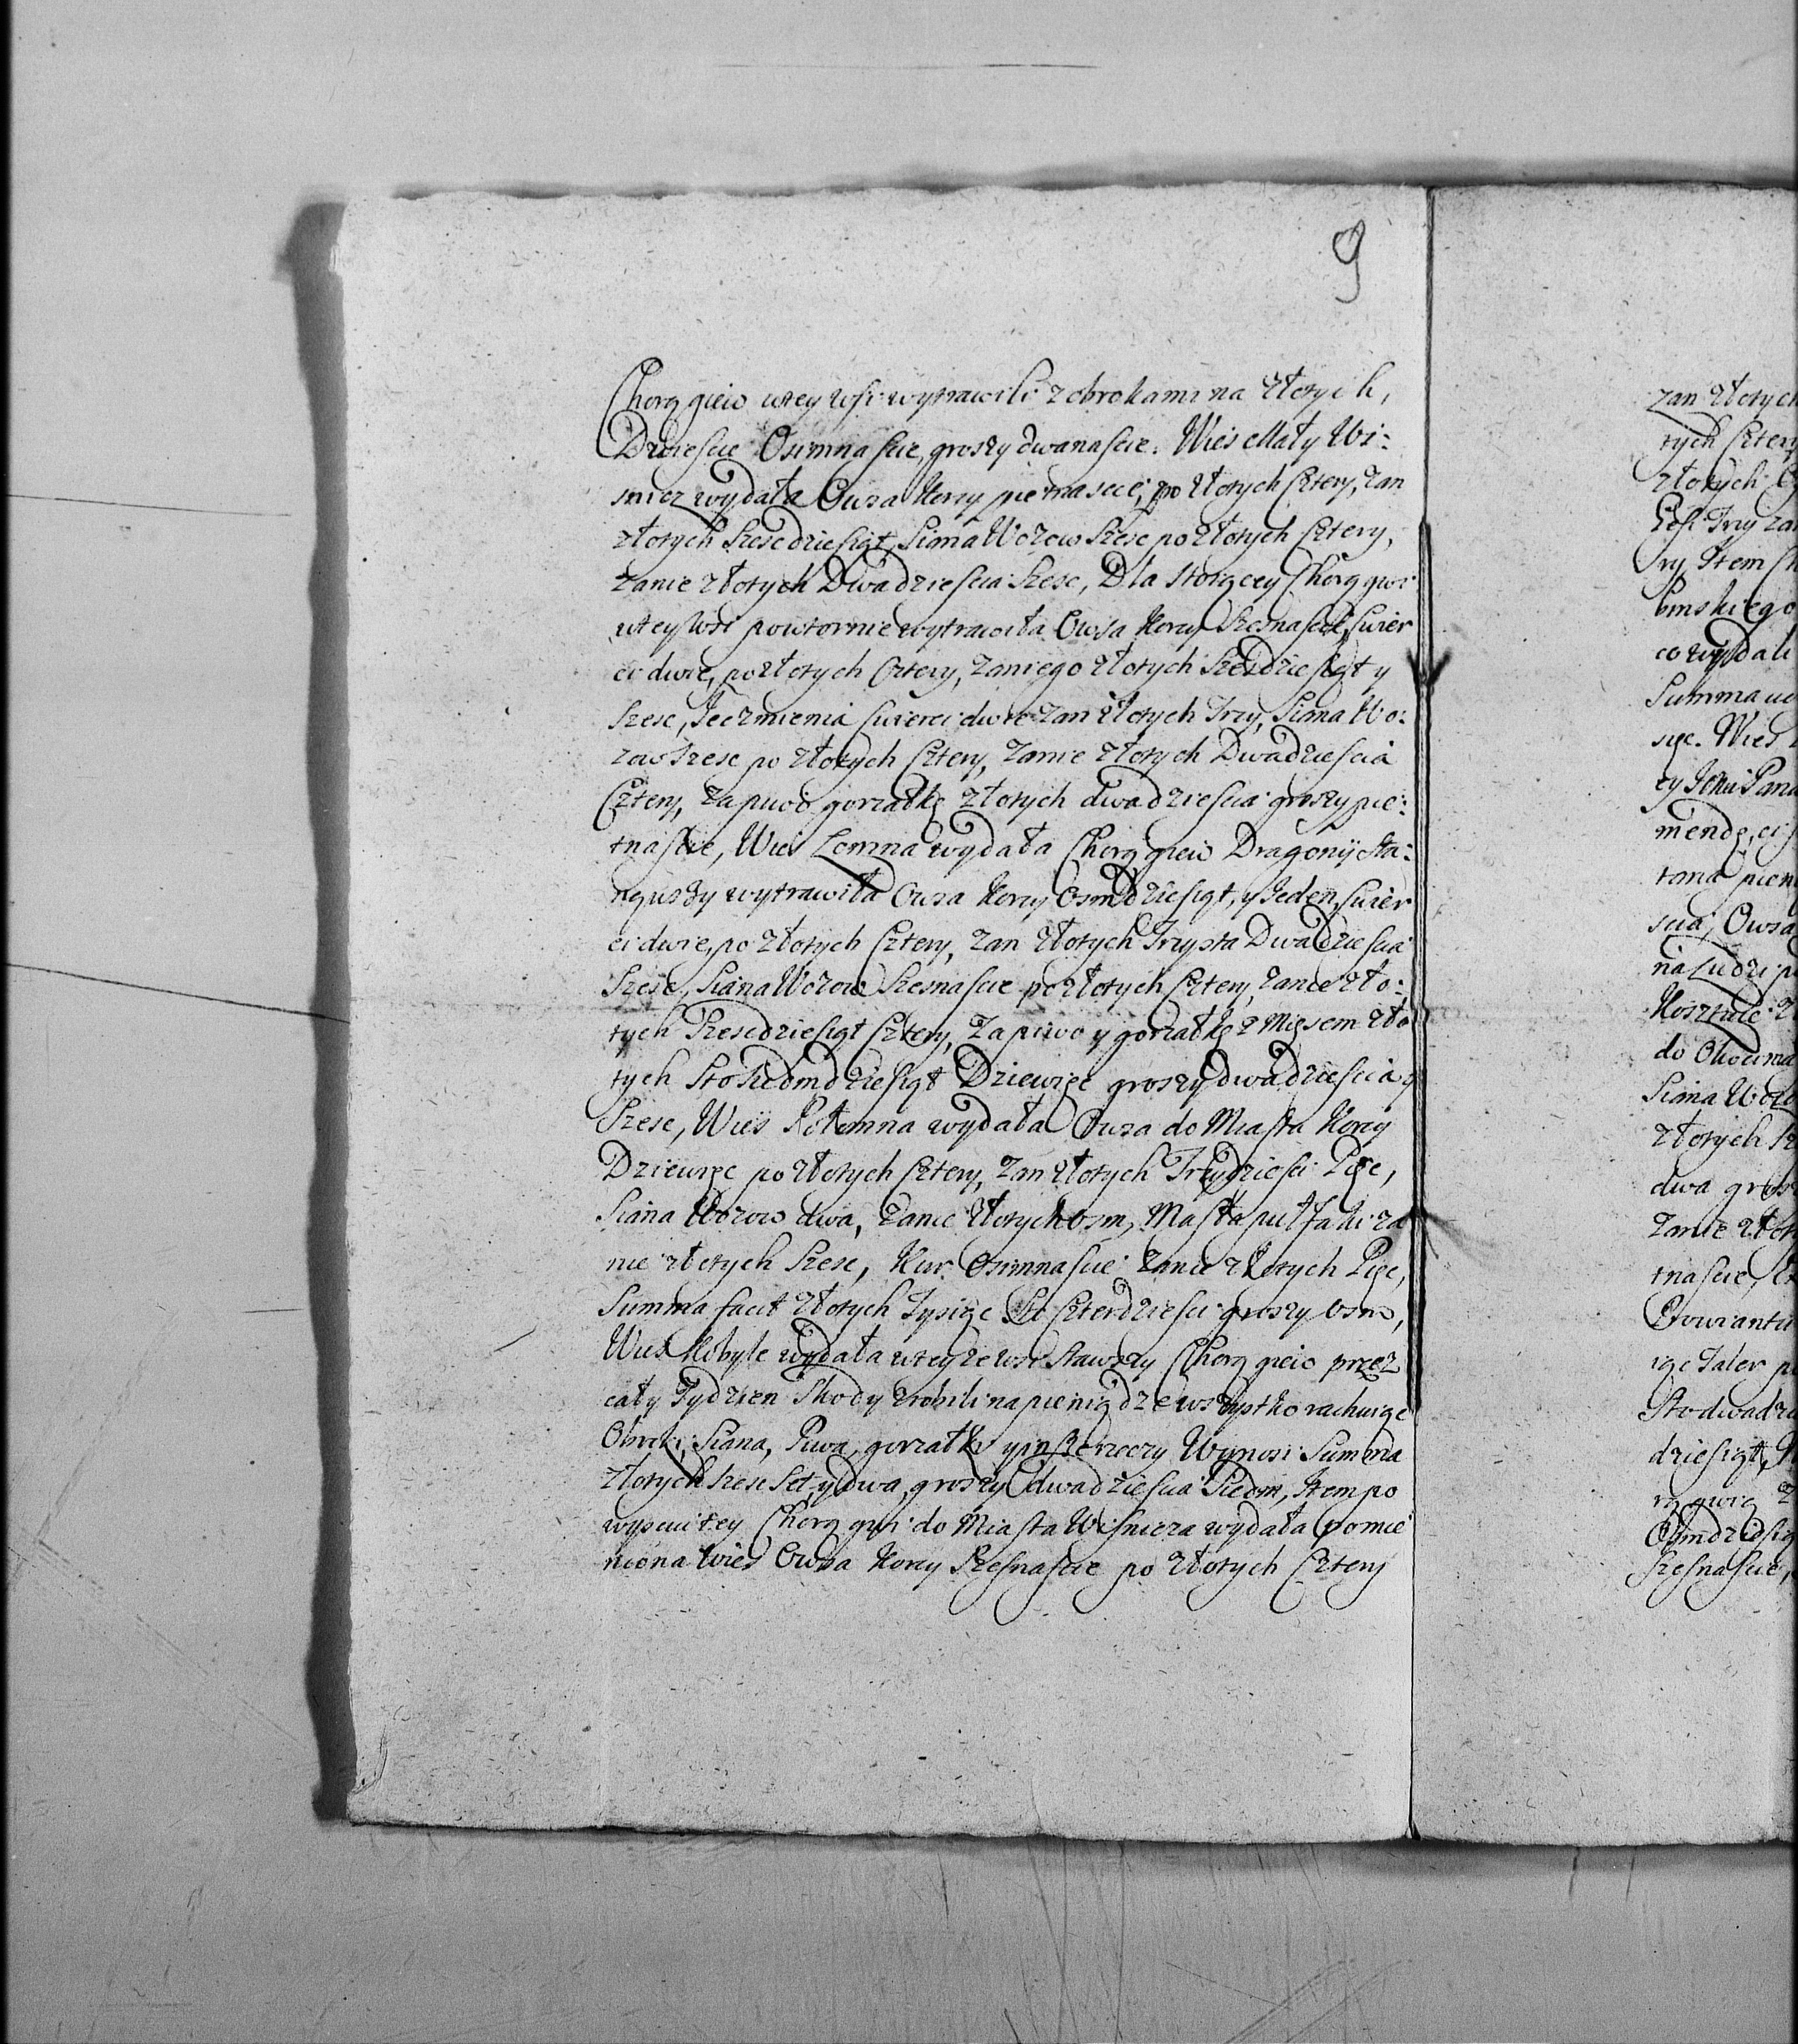 9
Chorągiew wtey wsi wytrawili zobrokami na złotych,
Dwiescie Osimnascie, groszy dwanascie. Wies Mały Wi:
snicz wydała Owsa Korcy pietnascie, po złotych Cztery, zan
złotych Szescdziesiąt, Siana Wozow Szesc po złotych Cztery,
zanie złotych Dwadziescia Szesc, Dla stoiącey Chorągwi
wteyWsi powtornie wytrawiła Owsa Korcy Szesnascie, swier
ci dwie, po złotych Cztery, zaniego złotych Szesdziesiąt y
Szesc, Jeczmienia swierci dwie zan złotych Trzy, Siana Wo:
zow Szesc po złotych Cztery, zanie złotych Dwadziescia
Cztery, za piwo gorzałkę złotych dwadziescia groszy pie:
tnascie, Wies Łomna wydała Chorągiew Dragonij sta:
nąwszy wytrawiła Owsa Korcy Osmdziesiąt, y Jeden, swier
ci dwie, po złotych Cztery, zan złotych Trzysta Dwadziescia
Szesc, Siana Wozow Szesnascie po złotych Cztery, zanie zło:
tych Szescdziesiąt Cztery, Za piwo y gorzałkę z Mięsem zło
tych Sto Siedmdziesiąt Dziewięc groszy dwadziescia y
Szesc, Wies Połomna wydała Owsa do Miasta Korcy
Dziewięc po złotych Cztery, zan złotych Trzydziesci Pięc,
Siana Wozow dwa, zanie złotych osm, Masła puł faski za
nie złotych Szesc, Kur Osimnascie zanie złotych Pięc,
Summa facit złotych Tysiąc Sto Czterdziesci groszy osm,
Wies Kobyle wydała wteyże wsi stawszy Chorągiew przez
cały Tydzien Skody zrobili na pieniądze wszystko rachuiąc
Obroki, Siana, Piwa, gorzałki yinsze rzeczy Wynosi Summa
złotych Szesc Set, y dwa, groszy dwadziescia Siedm, Item po
wysciu tey Chorągwi do Miasta Wisnicza wydała pomie
niona Wies Owsa Korcy Szesnascie po złotych Cztery
zan złotych
tych Cztery
złotych
ry Item
co wydali
Summa
się. Wies
scia, Owsa
Siana Wozo
złotych
dwa gros
zanie złot
tnascie,
Prowiantu
Sto dwadzie
dziesiąt,
Osmdziesią
Szesnascie,